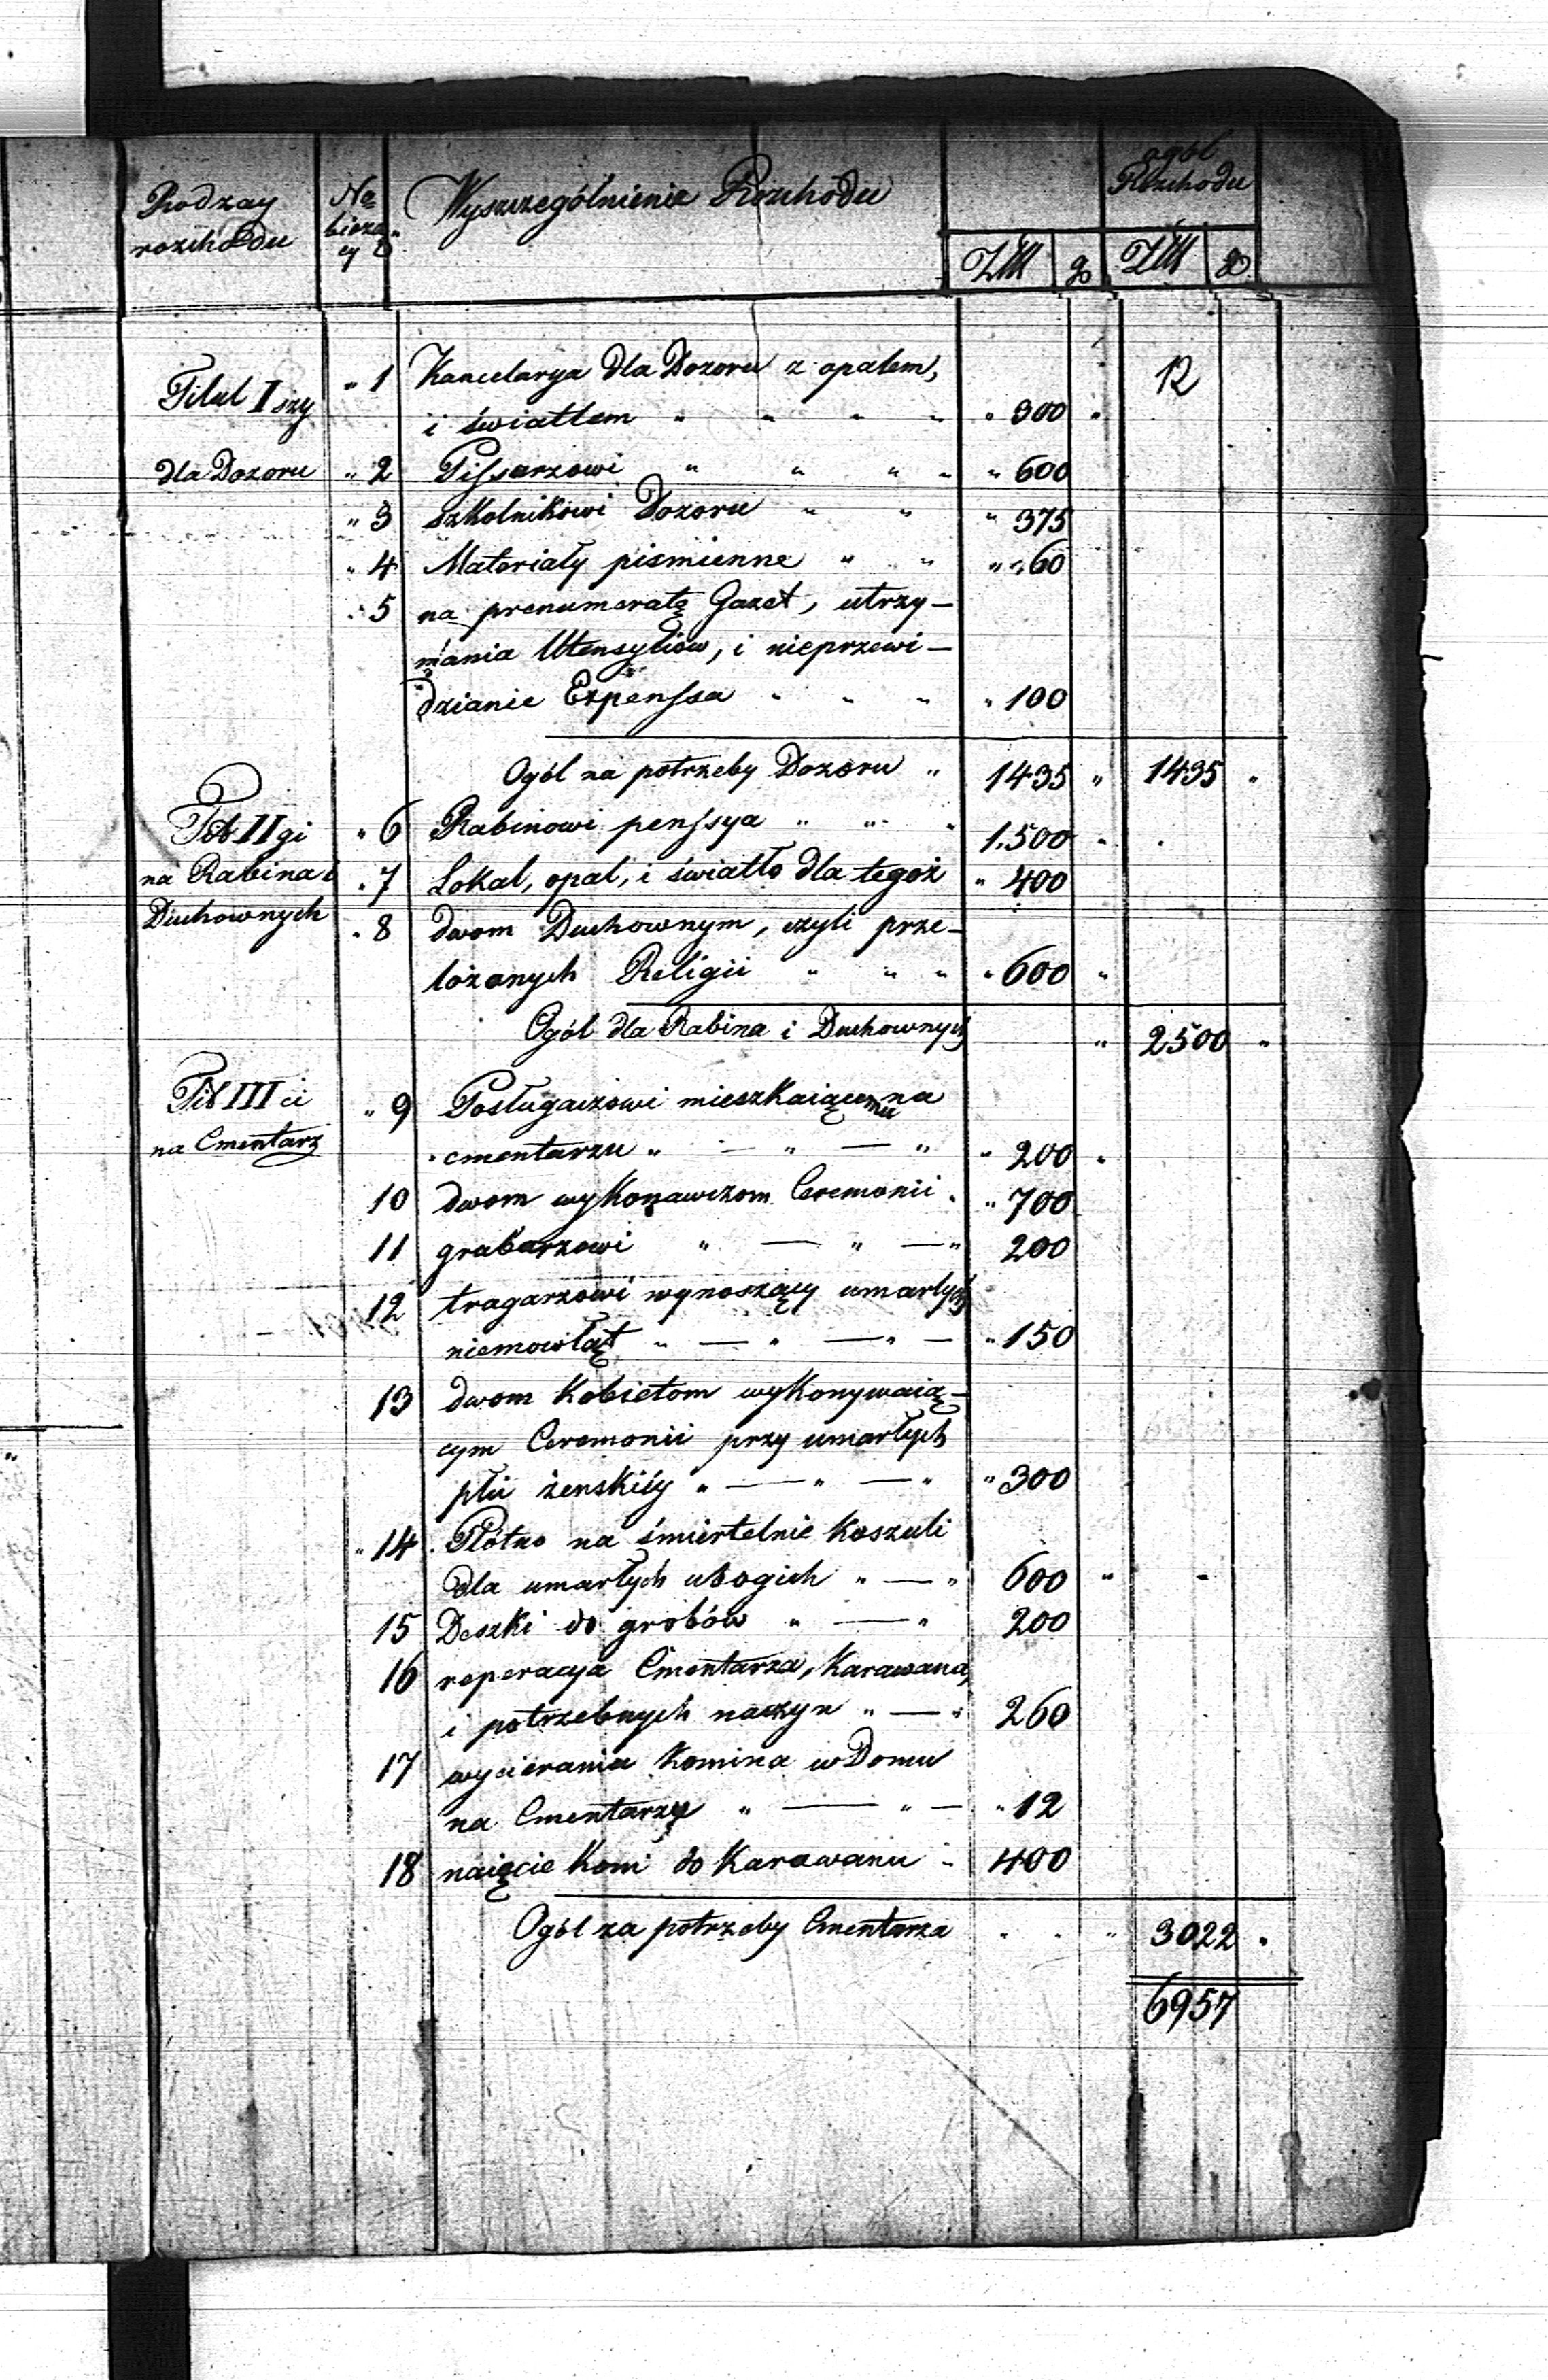 Rodzay rozchodu
No bieżący
Wyszczególnienie Rozchodu
ogół Rozchodu
Złł g Złł g
Tituł I szy " 1 Kancelarya dla Dozoru z opałem, 12
i światłem " " " " " 300 "
dla Dozoru " 2 Pissarzowi " " " " " 600
" 3 szkolnikowi Dozoru " " " 375
" 4 Materiały pismienne " " " " 60
" 5 na prenumeratę Gazet, utrzy-
mania Utensyliów, i nieprzewi-
dzianie Expenssa " " " " 100
Ogól na potrzeby Dozoru " 1435 " 1435 "
Tit II gi " 6 Rabinowi penssya " " " 1.500 "
na Rabina i " 7 Lokal, opał, i światło dla tegoż " 400
Duchownych " 8 dwom Duchownym, czyli prze-
łożonych Religii " " " " 600 "
Ogól dla Rabina i Duchownych " 2500 "
Tit III ci " 9 Posługaczowi mieszkaiącemu na
na Cmentarz
cmentarzu " — " — " " 200 "
10 dwom wykonawczom Ceremonii " " 700
11 grabarzowi " — " — " 200
12 tragarzowi wynoszący umarłych
niemowląt " — " — " — " 150
13 dwom Kobietom wykonywaią-
cym Ceremonii przy umarłych
płci żenskiéy " — " — " " 300
" 14 Płótno na śmiertelnie Koszuli
dla umarłych ubogich " — " 600 " -
15 Deszki do grobów " — " 200
16 reperacya Cmentarza, Karawana,
i potrzebnych naczyn " — " 260
17 wycierania Komina w Domu
na Cmentarzy " — " — " 12
18 naięcie Koni do Karawanu " 400
Ogól za potrzeby Cmentarza " " " 3022 "
6957